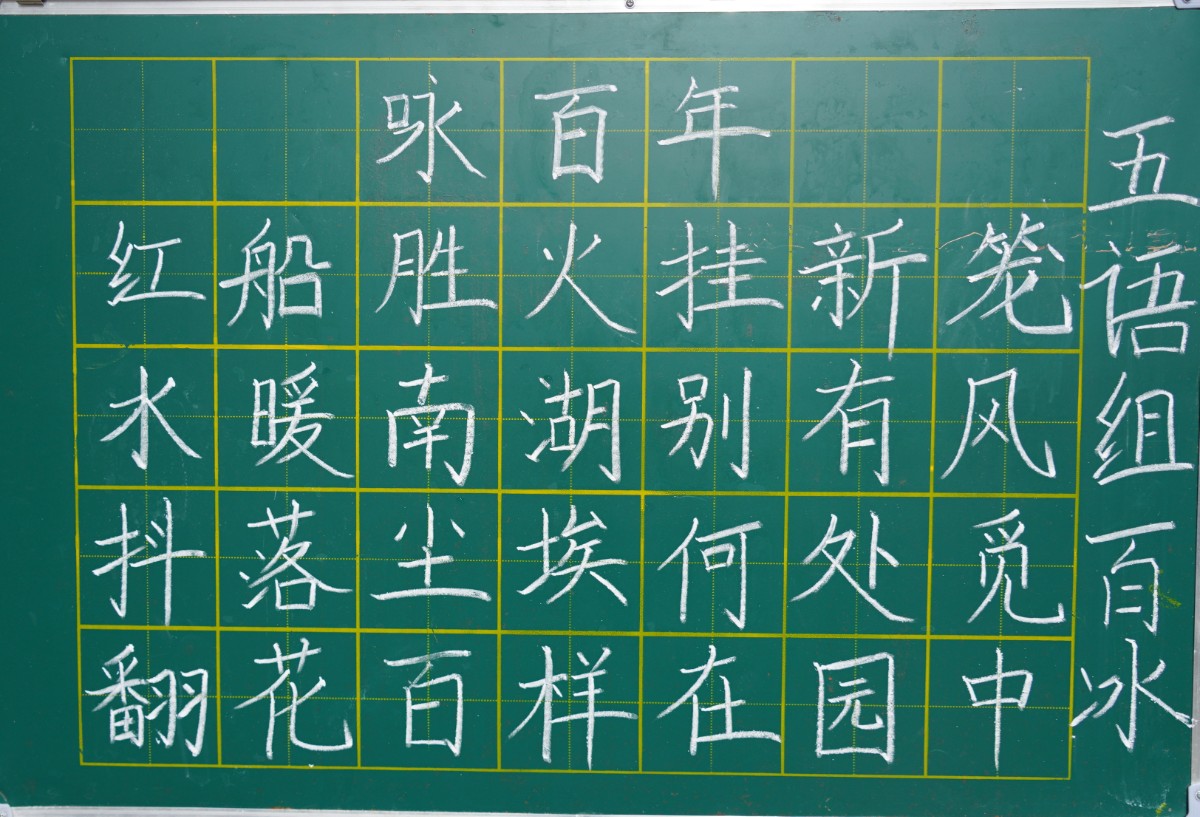 咏百年
红船胜火挂新笼
水暖南湖别有风
抖落尘埃何处觅
翻花百样在园中
五语组百冰